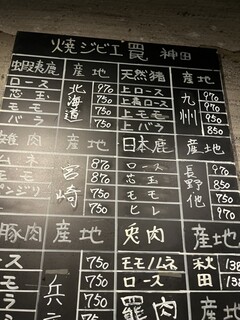 焼ジビエ罠 神田
蝦夷鹿 産地
ロース 970
芯玉 750
モモ 750
バラ 750
北海道
天然猪 産地
上ロース 970
上肩ロース 950
上モモ 950
上バラ 850
九州
雑肉 産地
ムネ 870
モモ 870
ボンジリ 750
宮崎
日本鹿 産地
ロース 970
芯玉 850
モモ 850
ヒレ 970
長野他
豚肉 産地
ース 750
ラ 750
兎肉 産地
モモ/ムネ
ロース
秋田
罠肉 産地